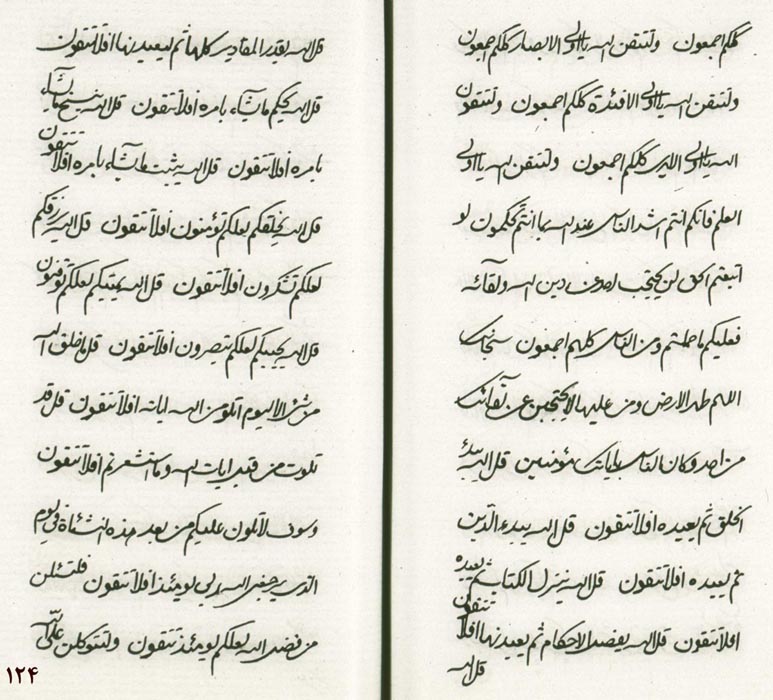 كلكم اجمعون ولتتقن الله يا اولي الابصار كلكم اجمعون
ولتتقن الله يا اولي الافئدة كلكم اجمعون ولتتقون
الله يا اولي كلكم اجمعون ولتتقن الله يا اولي
العلم فانكم انتم اشد الناس عند الله بما انتم تحكمون لو
اتبعتم الحق لن يحتجب احد عن دين الله ولقائه
فعليكم ما حملتم ومن الناس كلهم اجمعون سبحانك
اللهم طهر الارض ومن عليها لا يحتجبن عن لقائك
من احد وكان الناس باياتك مؤمنين قل الله يبدء
الخلق ثم يعيده افلا تتقون قل الله يبدء الدين
ثم يعيده افلا تتقون قل الله ينزل الكتاب ثم يعيده
افلا تتقون قل الله يفصل الاحكام ثم يعيدنها افلا تتقون
قل الله
قل الله يقدر المقادير كلها ثم ليعيدنها افلا تتقون
قل الله يحكم ما يشاء بامره افلا تتقون قل الله ينسخ ما يشاء
بامره افلا تتقون قل الله يثبت ما يشاء بامره افلا تتقون
قل الله يخلقكم لعلكم تؤمنون افلا تتقون قل الله يرزقكم
لعلكم تشكرون افلا تتقون قل الله يميتكم لعلكم توقنون
قل الله يحييكم لعلكم تبصرون افلا تتقون قل ما خلق الله
من شئ الا اليوم اتلو من الله اياته افلا تتقون قل قد
تلوت من قبل ايات الله وما استشعرتم افلا تتقون
وسوف لاتلون عليكم من بعد هذه النشئاة في يوم
الذي يرجعني الله ربي يومئذ افلا تتقون فلتسئلن
من فضل الله لعلكم يومئذ تتقون ولتتوكلن على الله
۱۲۴